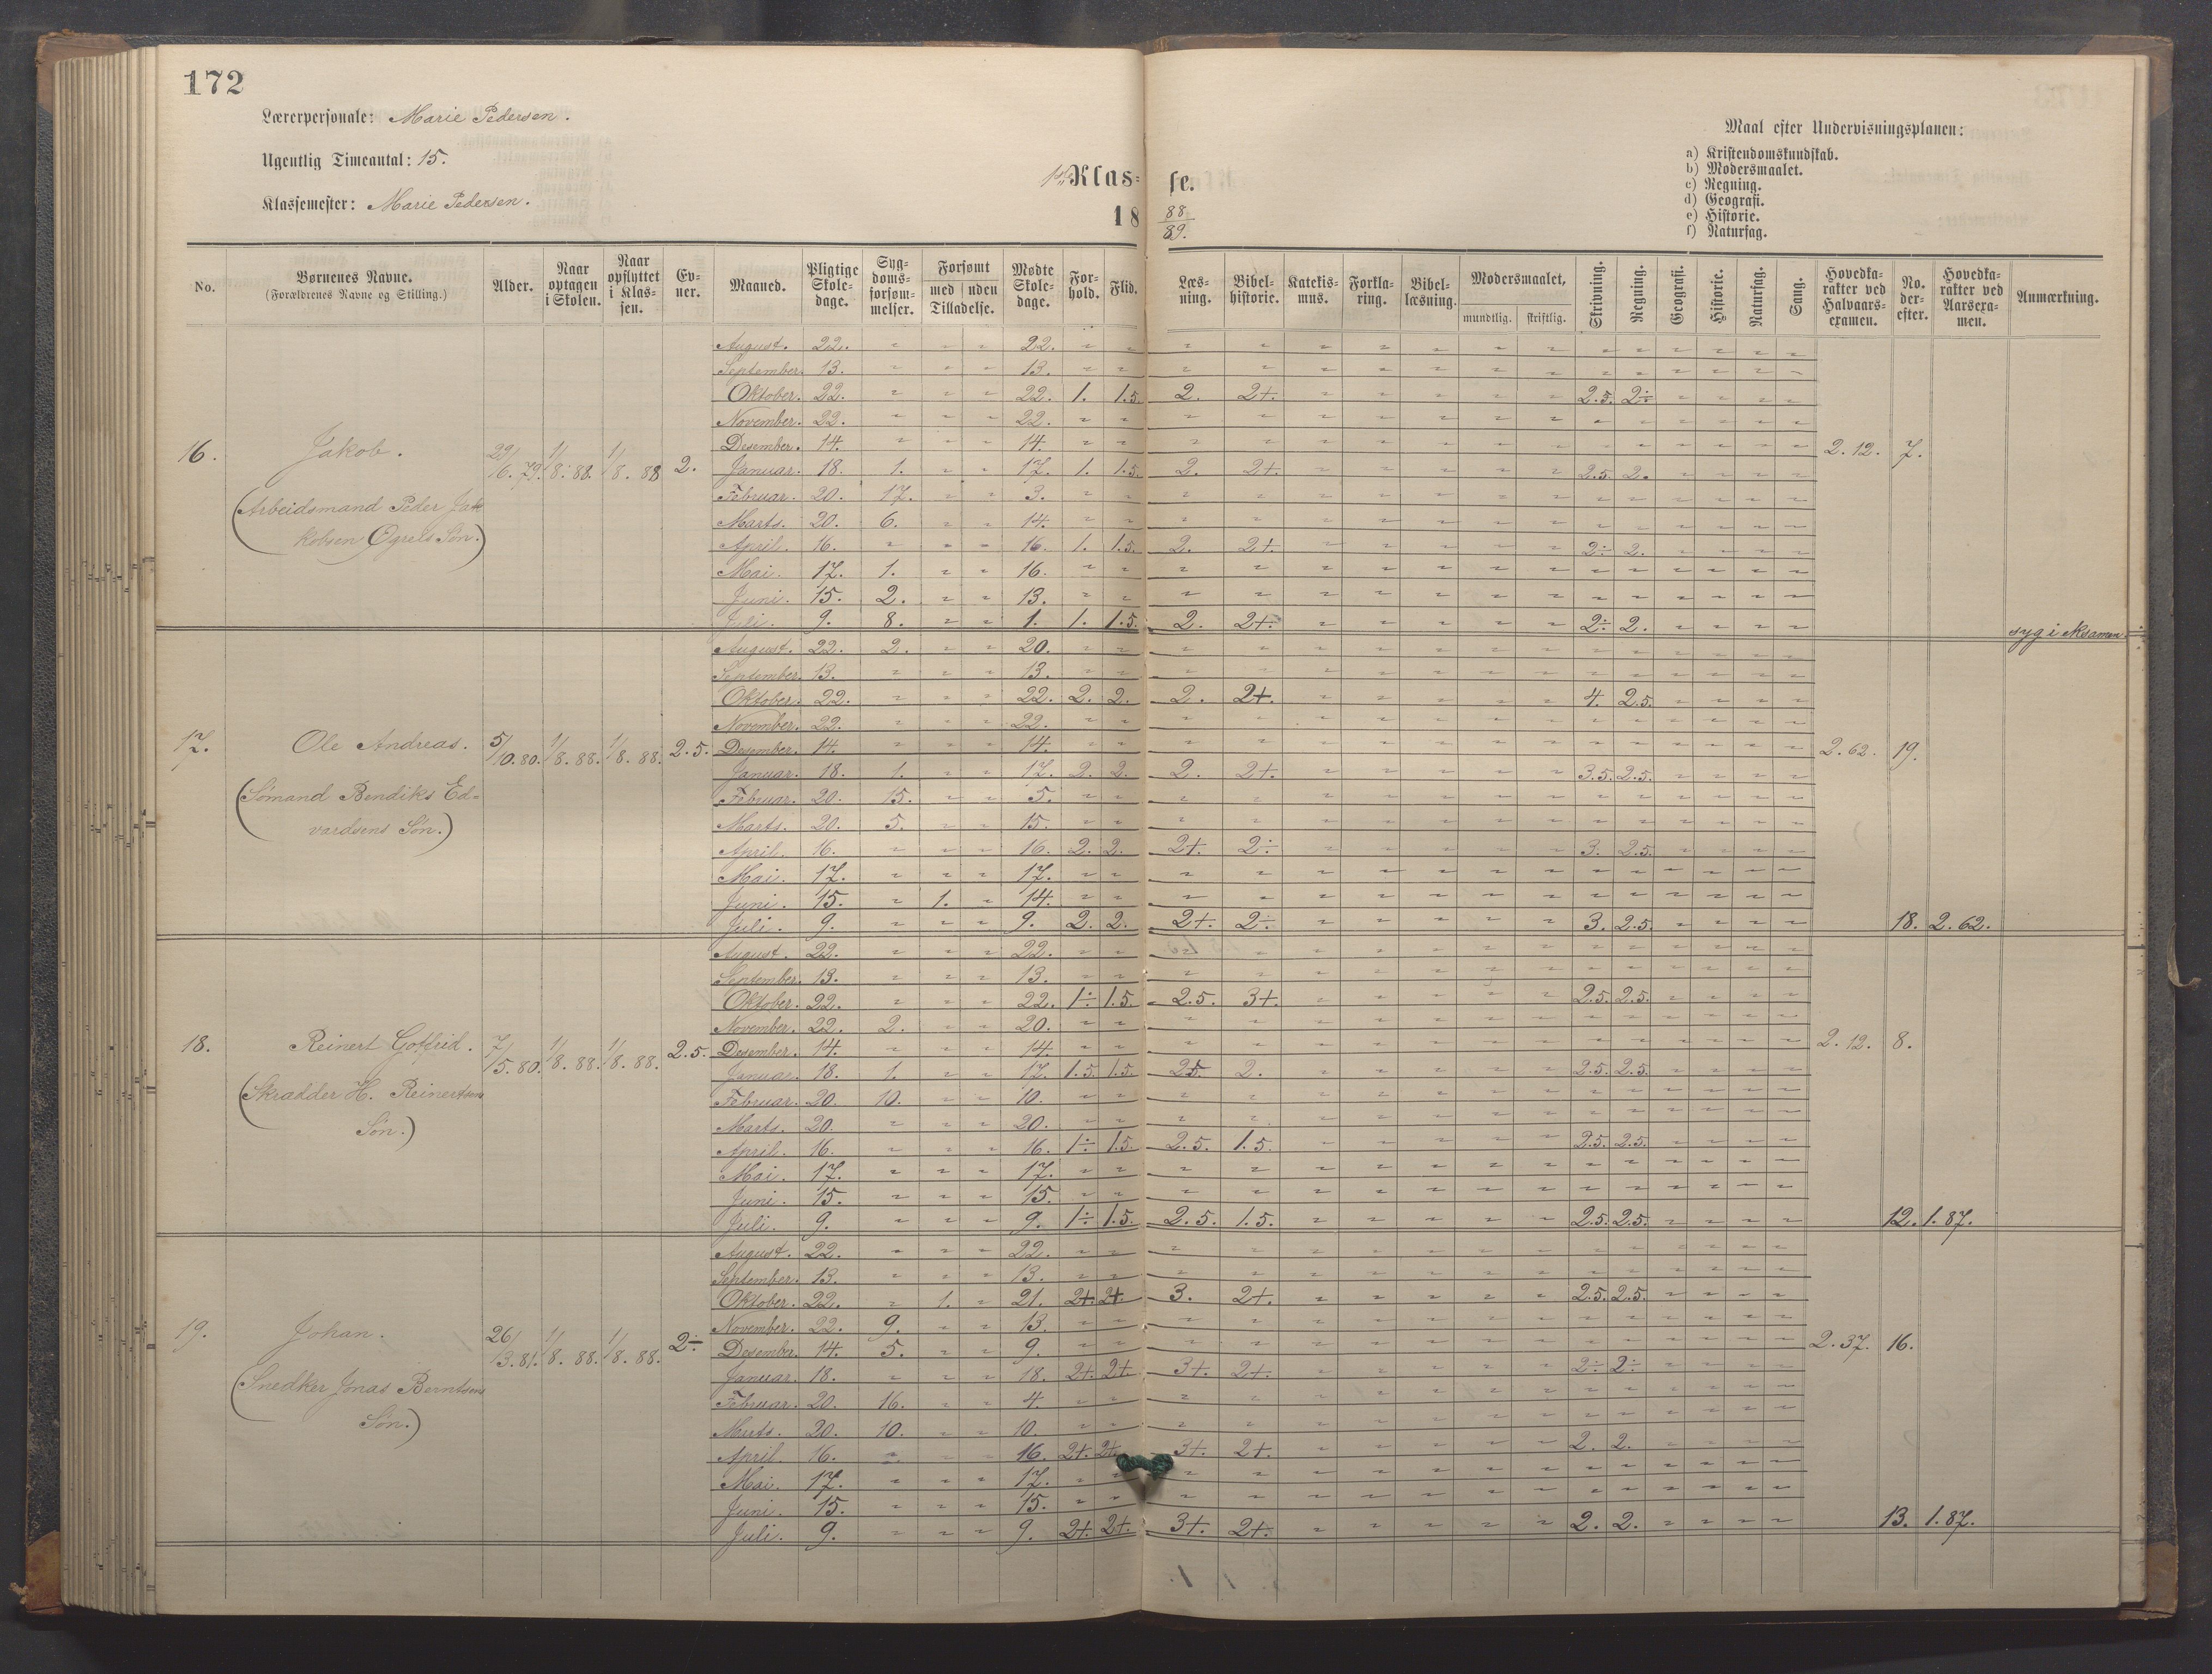 172
Lærerpersonale: Marie Pedersen.
Ugentlig Timeantal: 15.
Klassemester: Marie Pedersen.
1ste Klas=
se.
18 88/89.
Maal efter Undervisningsplanen:
a) Kristendomskundskab.
b) Modersmaalet.
c) Regning.
d) Geografi.
e) Historie.
f) Naturfag.
No. | Børnenes Navne. (Forældrenes Navne og Stilling.) | Alder. | Naar optagen i Skolen. | Naar opflyttet i Klas-sen. | Ev-ner. | Maaned. | Pligtige Skole-dage. | Syg-doms-forsøm-melser. | Forsømt med Tilladelse. | uden Tilladelse. | Mødte Skole-dage. | For-hold. | Flid. | Læs-ning. | Bibel-historie. | Katekis-mus. | Forkla-ring. | Bibel-læsning. | Modersmaalet, mundtlig. | skriftlig. | Skrivning. | Regning. | Geografi. | Historie. | Naturfag. | Sang. | Hovedka-rakter ved Halvaars-examen. | No. der-efter. | Hovedka-rakter ved Aarsexa-men. | Anmærkning.
16. Jakob. 29/6. 79. 1/8. 88. 1/8. 88 2.
(Arbeidsmand Peder Jak
kobsen Søn.)
August. 22. " " " 22. " "
September. 13. " " " 13. " "
Oktober. 22. " " " 22. 1. 1.5. 2. 2+. 2.5. 2÷
November. 22. " " " 22. " "
Desember. 14. " " " 14. " " 2.12. 7.
Januar. 18. 1. " " 17. 1. 1.5. 2. 2+. 2.5. 2.
Februar. 20. 17. " " 3. " "
Marts. 20. 6. " " 14. " "
April. 16. " " " 16. 1. 1.5. 2. 2+. 2÷ 2.
Mai. 17. 1. " " 16. " "
Juni. 15. 2. " " 13. " "
Juli. 9. 8. " " 1. 1. 1.5. 2. 2+. 2÷ 2. syg i eksamen.
17. Ole Andreas. 5/10. 80. 1/8. 88. 1/8. 88. 2.5.
(Sømand Bendiks Ed=
vardsens Søn.)
August. 22. 2. " " 20. " "
September. 13. " " " 13. " "
Oktober. 22. " " " 22. 2. 2. 2. 2+. 4. 2.5.
November. 22. " " " 22. " "
Desember. 14. " " " 14. " " 2.62. 19.
Januar. 18. 1. " " 17. 2. 2. 2. 2+. 3.5. 2.5.
Februar. 20. 15. " " 5. " "
Marts. 20. 5. " " 15. " "
April. 16. " " " 16. 2. 2. 2+. 2÷ 3. 2.5.
Mai. 17. " " " 17. " "
Juni. 15. " 1. " 14. " "
Juli. 9. " " " 9. 2. 2. 2+. 2÷ 3. 2.5. 18. 2.62.
18. Reinert Gotfrid. 7/5. 80. 1/8. 88. 1/8. 88. 2.5.
(Skradder H. Reinertsens
Søn.)
August. 22. " " " 22. " "
September. 13. " " " 13. " "
Oktober. 22. " " " 22. 1÷ 1.5. 2.5. 3+. 2.5. 2.5.
November. 22. 2. " " 20. " "
Desember. 14. " " " 14. " " 2.12. 8.
Januar. 18. 1. " " 17. 1.5. 1.5. 2.5 2. 2.5. 2.5.
Februar. 20. 10. " " 10. " "
Marts. 20. " " " 20. " "
April. 16. " " " 16. 1÷ 1.5. 2.5. 1.5. 2.5. 2.5.
Mai. 17. " " " 17. " "
Juni. 15. " " " 15. " "
Juli. 9. " " " 9. 1÷ 1.5. 2.5. 1.5. 2.5. 2.5. 12. 1.87.
19. Johan. 26/3. 81. 1/8. 88. 1/8. 88. 2÷
(Snedker Jonas Berntsens
Søn.)
August. 22. " " " 22. " "
September. 13. " " " 13. " "
Oktober. 22. " 1. " 21. 2+. 2+. 3. 2+. 2.5. 2.5.
November. 22. 9. " " 13. " "
Desember. 14. 5. " " 9. " " 2.37. 16.
Januar. 18. " " " 18. 2+. 2+. 3+. 2+. 2÷ 2÷
Februar. 20. 16. " " 4. " "
Marts. 20. 10. " " 10. " "
April. 16. " " " 16. 2+. 2+. 3+. 2+. 2. 2.
Mai. 17. " " " 17. " "
Juni. 15. " " " 15. " "
Juli. 9. " " " 9. 2+. 2+. 3+. 2+. 2. 2. 13. 1.87.